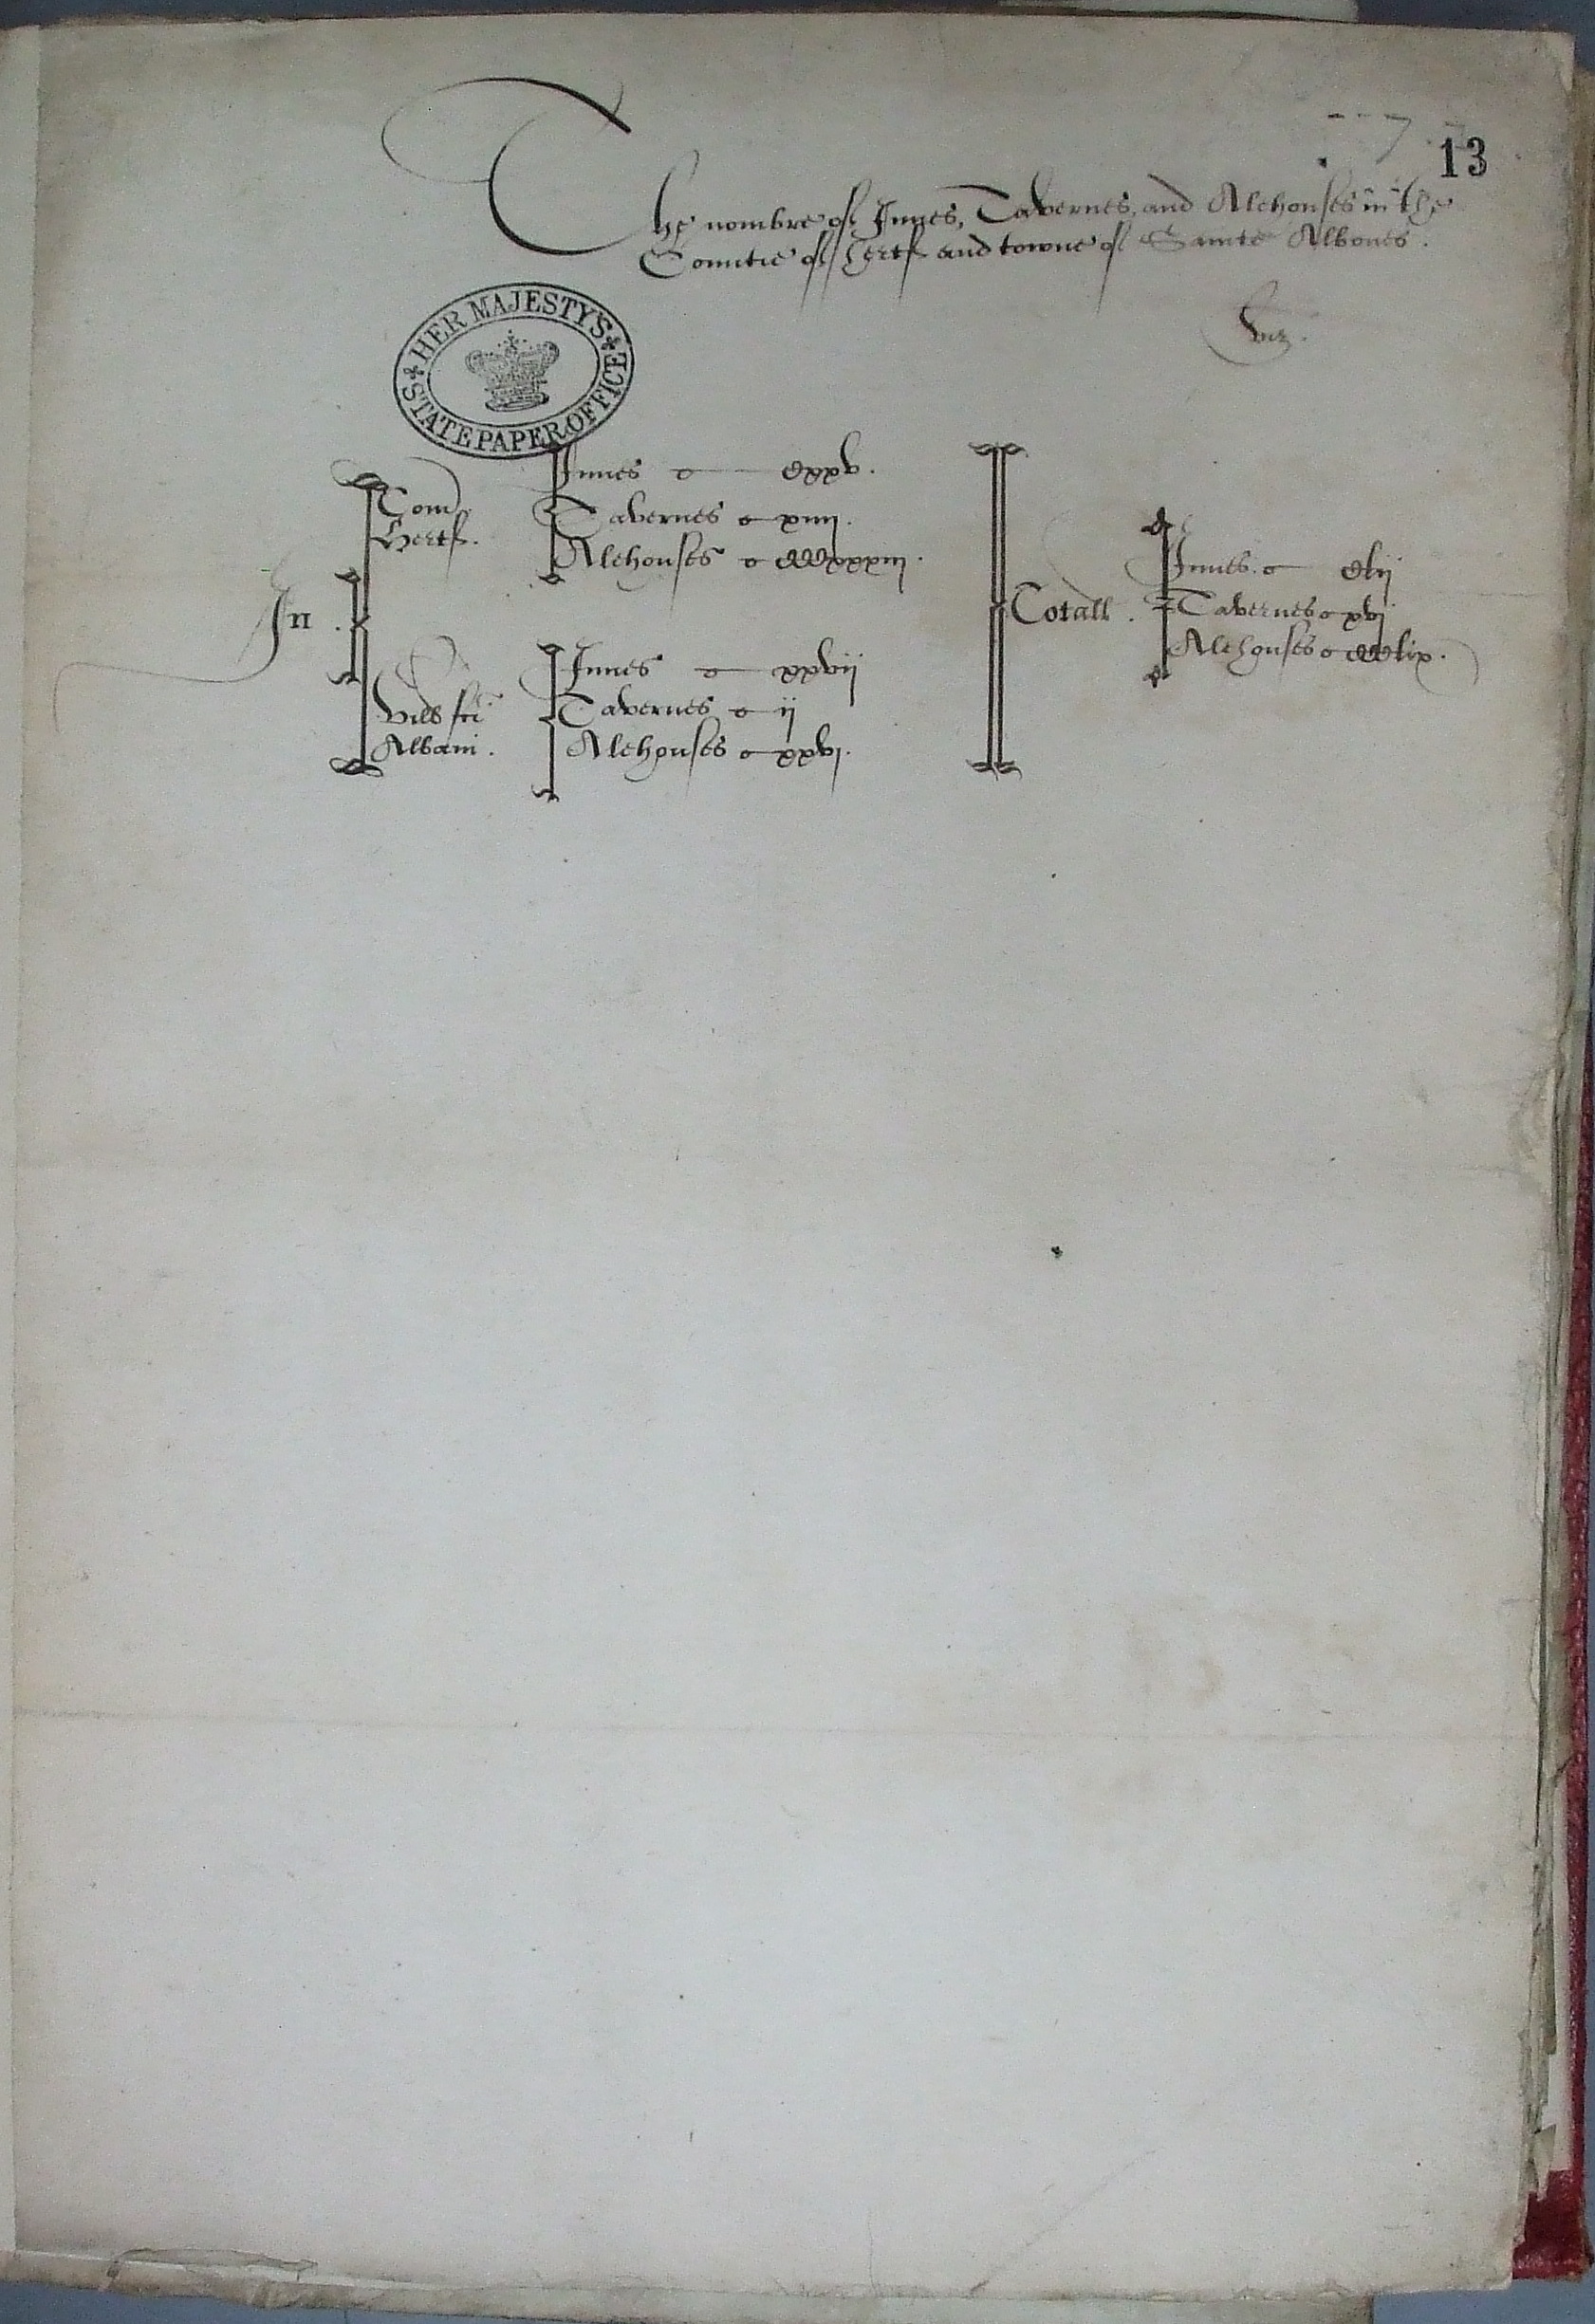 13
The nombre of Innes, Tavernes, and Alehouses in the
Countie of Hertf and towne of Sainte Albones.
viz.
HER MAJESTY'S STATE PAPER OFFICE
Innes cxxv.
Com
Hertf.
Tavernes xiiij.
Alehouses CCCxxxiij.
In.
Vill sci
Albani.
Innes xxvij
Tavernes ij
Alehouses xxvj.
Totall.
Innes. clij
Tavernes xvj
Alehouses CCClix.